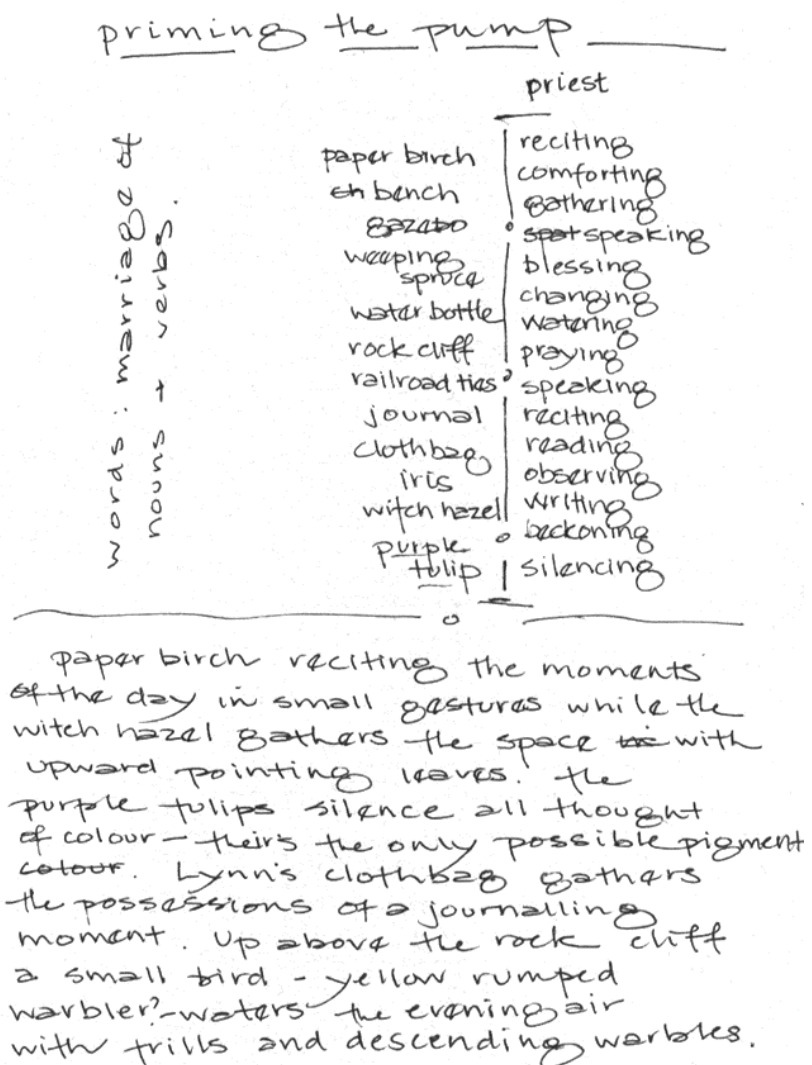 priming the pump
priest
words: marriage of
nouns + verbs.
paper birch
bench
gazebo
weeping
spruce
water bottle
rock cliff
railroad ties
journal
clothbag
iris
witch hazel
purple
tulip
reciting
comforting
gathering
spot speaking
blessing
changing
watering
praying
speaking
reciting
reading
observing
writing
beckoning
silencing
paper birch reciting the moments
of the day in small gestures while the
witch hazel gathers the space with
upward pointing leaves. the
purple tulips silence all thought
of colour - theirs the only possible pigment
colour. Lynn's clothbag gathers
the possessions of a journalling
moment. Up above the rock cliff
a small bird - yellow rumped
warbler? - waters the evening air
with trills and descending warbles.